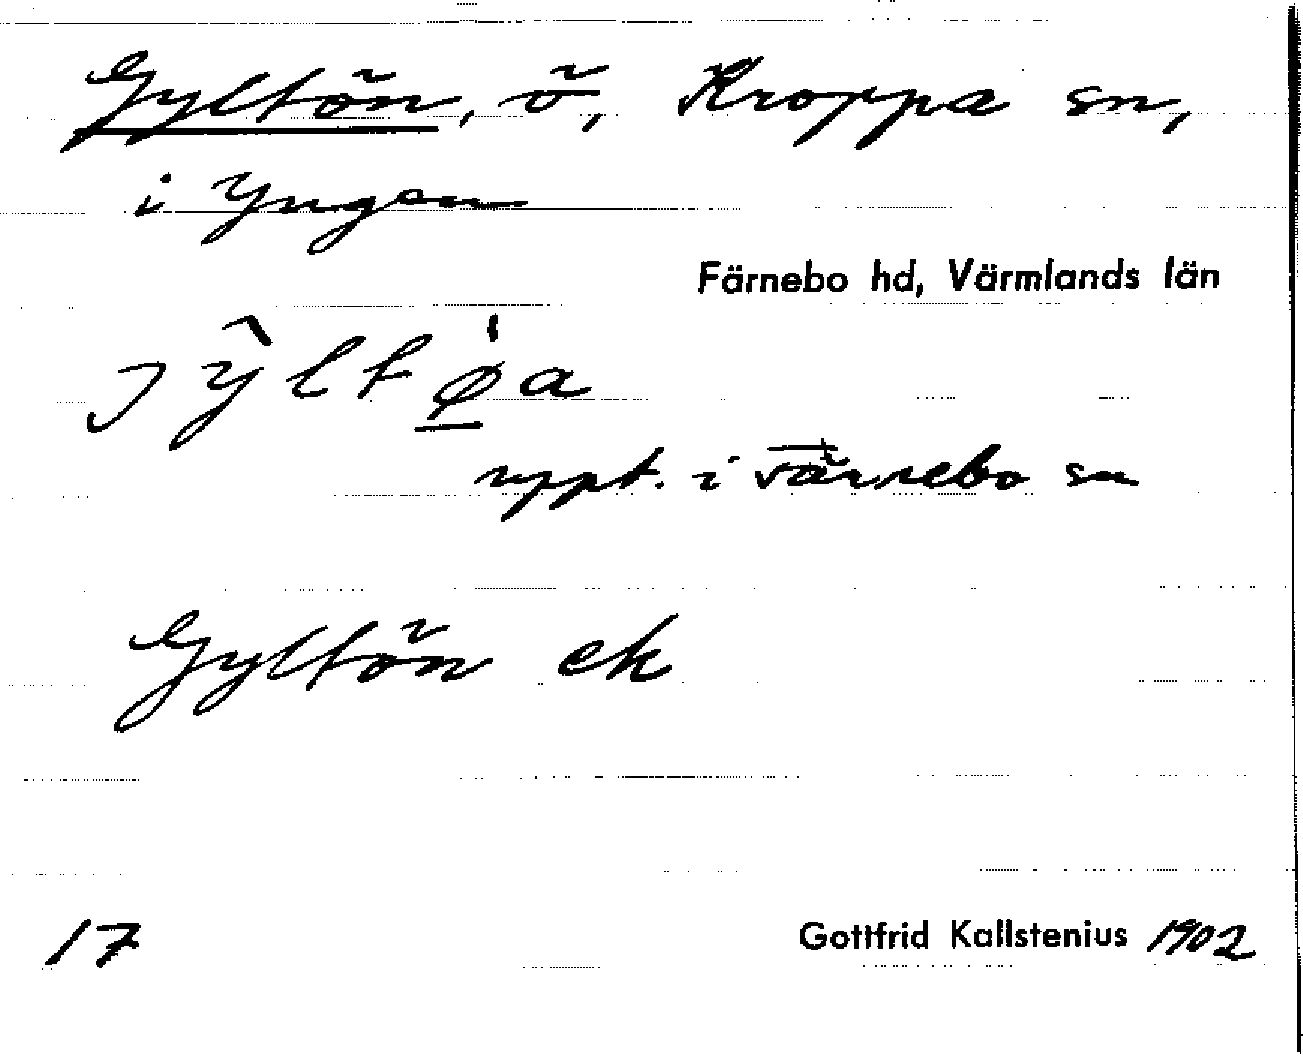 Gyltön, ö, Kroppa sn,
i Yngen
Färnebo hd, Värmlands län
uppt. i Värnebo sn
Gyltön ek
17
Gottfrid Kallstenius 1902